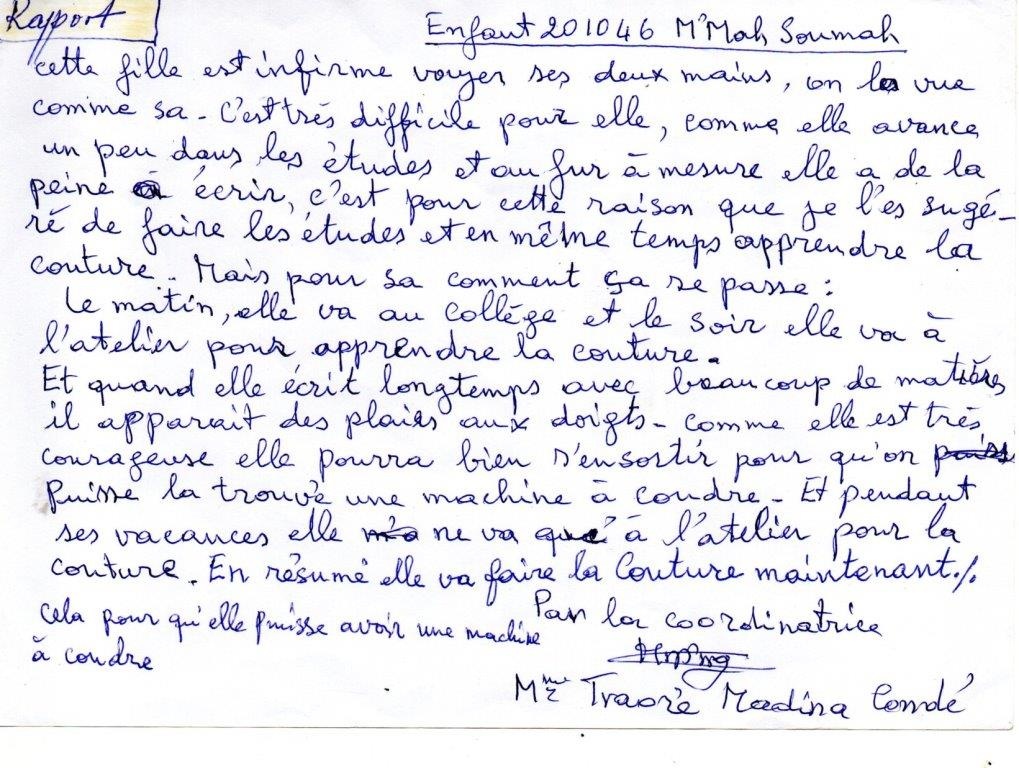 Rapport
Enfant 201046 M'Mah Soumah
cette fille est infirme voyer ses deux mains, on la vue
comme sa. C'est très difficile pour elle, comme elle avance
un peu dans les études et au fur à mesure elle a de la
peine à écrir, c'est pour cette raison que je l'es sugé-
ré de faire les études et en même temps apprendre la
couture. Mais pour sa comment ça se passe :
Le matin, elle va au collège et le soir elle va à
l'atelier pour apprendre la couture.
Et quand elle écrit longtemps avec beaucoup de matières
il apparait des plaies aux doigts - comme elle est très
courageuse elle pourra bien s'ensortir pour qu'on
puisse la trouvé une machine à coudre - Et pendant
ses vacances elle ne va que à l'atelier pour la
couture. En résumé elle va faire la Couture maintenant./.
Cela pour qu'elle puisse avoir une machine
à coudre
Par la coordinatrice
Mme Traoré Madina Condé